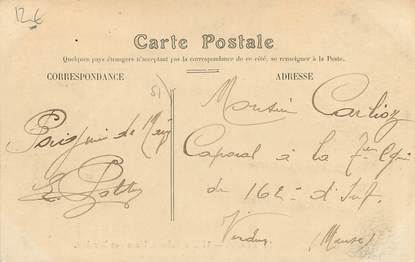 12€
Carte Postale
Quelques pays étrangers n'acceptant pas la correspondance de ce côté, se renseigner à la Poste.
CORRESPONDANCE
ADRESSE
51)
Monsieur Carlion
Caporal à la 7eme Cie
Poignée de Main
du 162e d'Inf.
Verdun (Meuse)